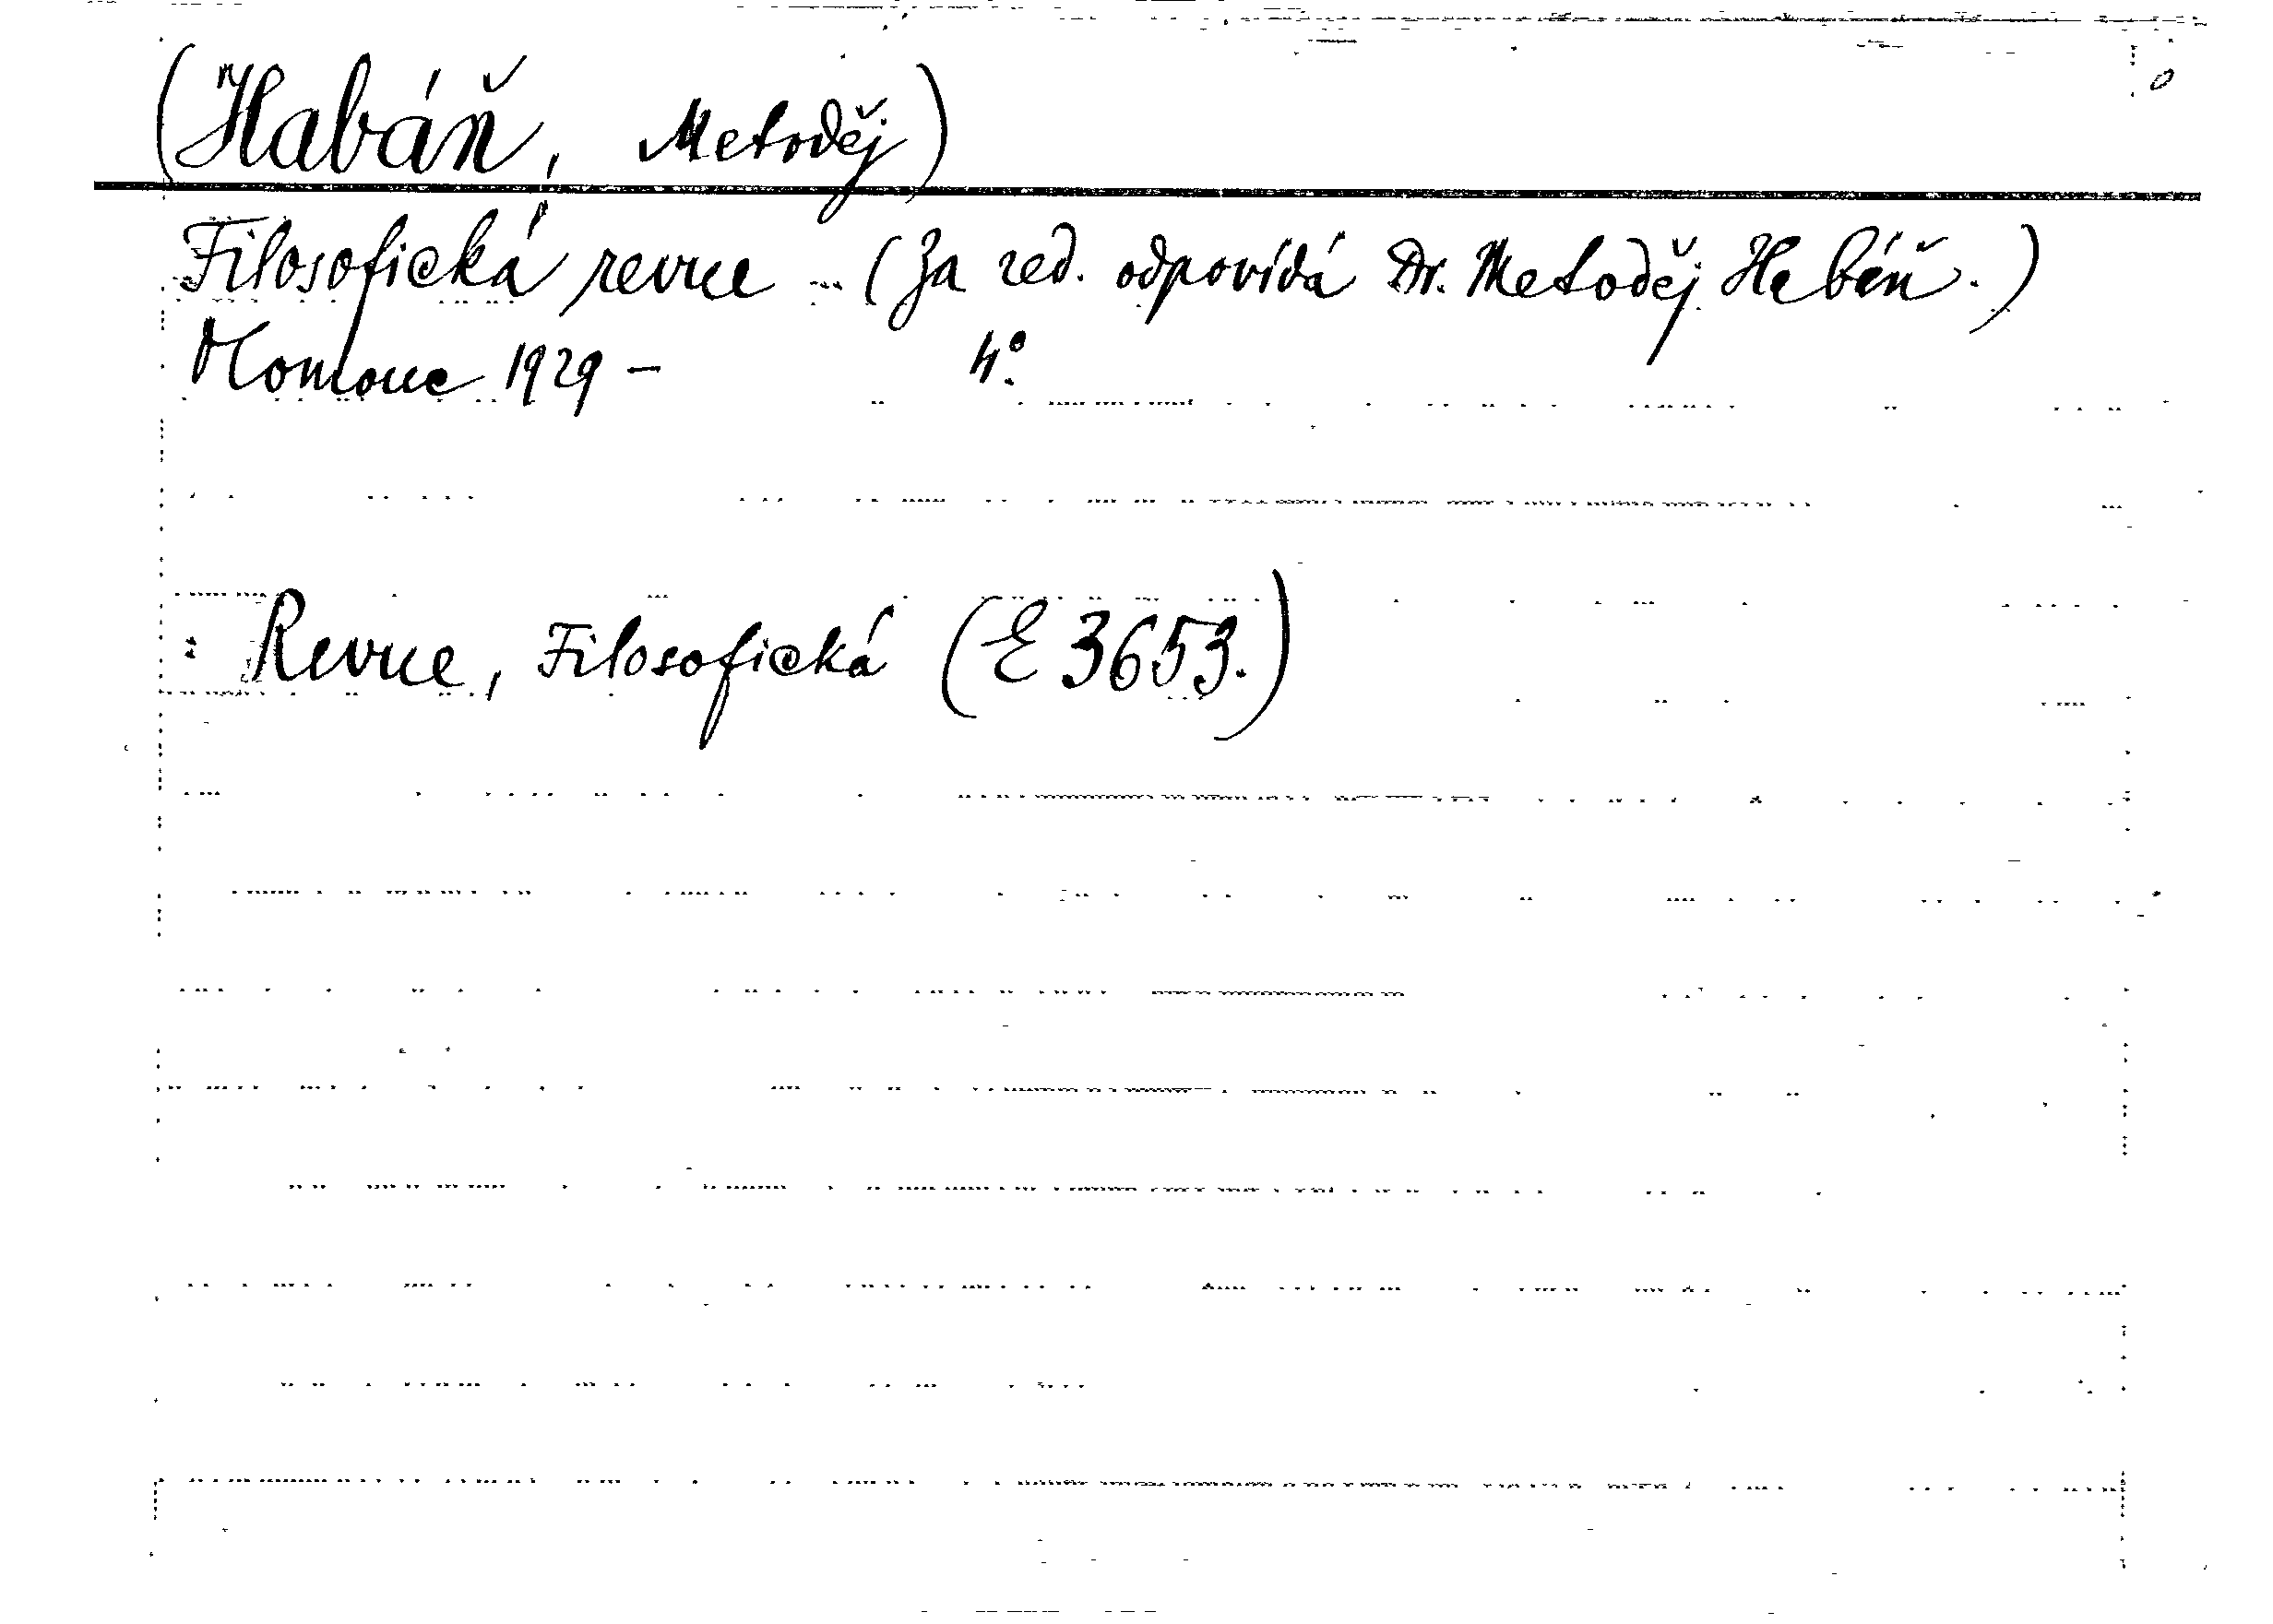 (Habáň, Metoděj)
Filosofická revue ... (Za red. odpovídá Dr. Metoděj Habáň.)
Olomouc 1929 – 4°.
: Revue, Filosofická (E 3653.)